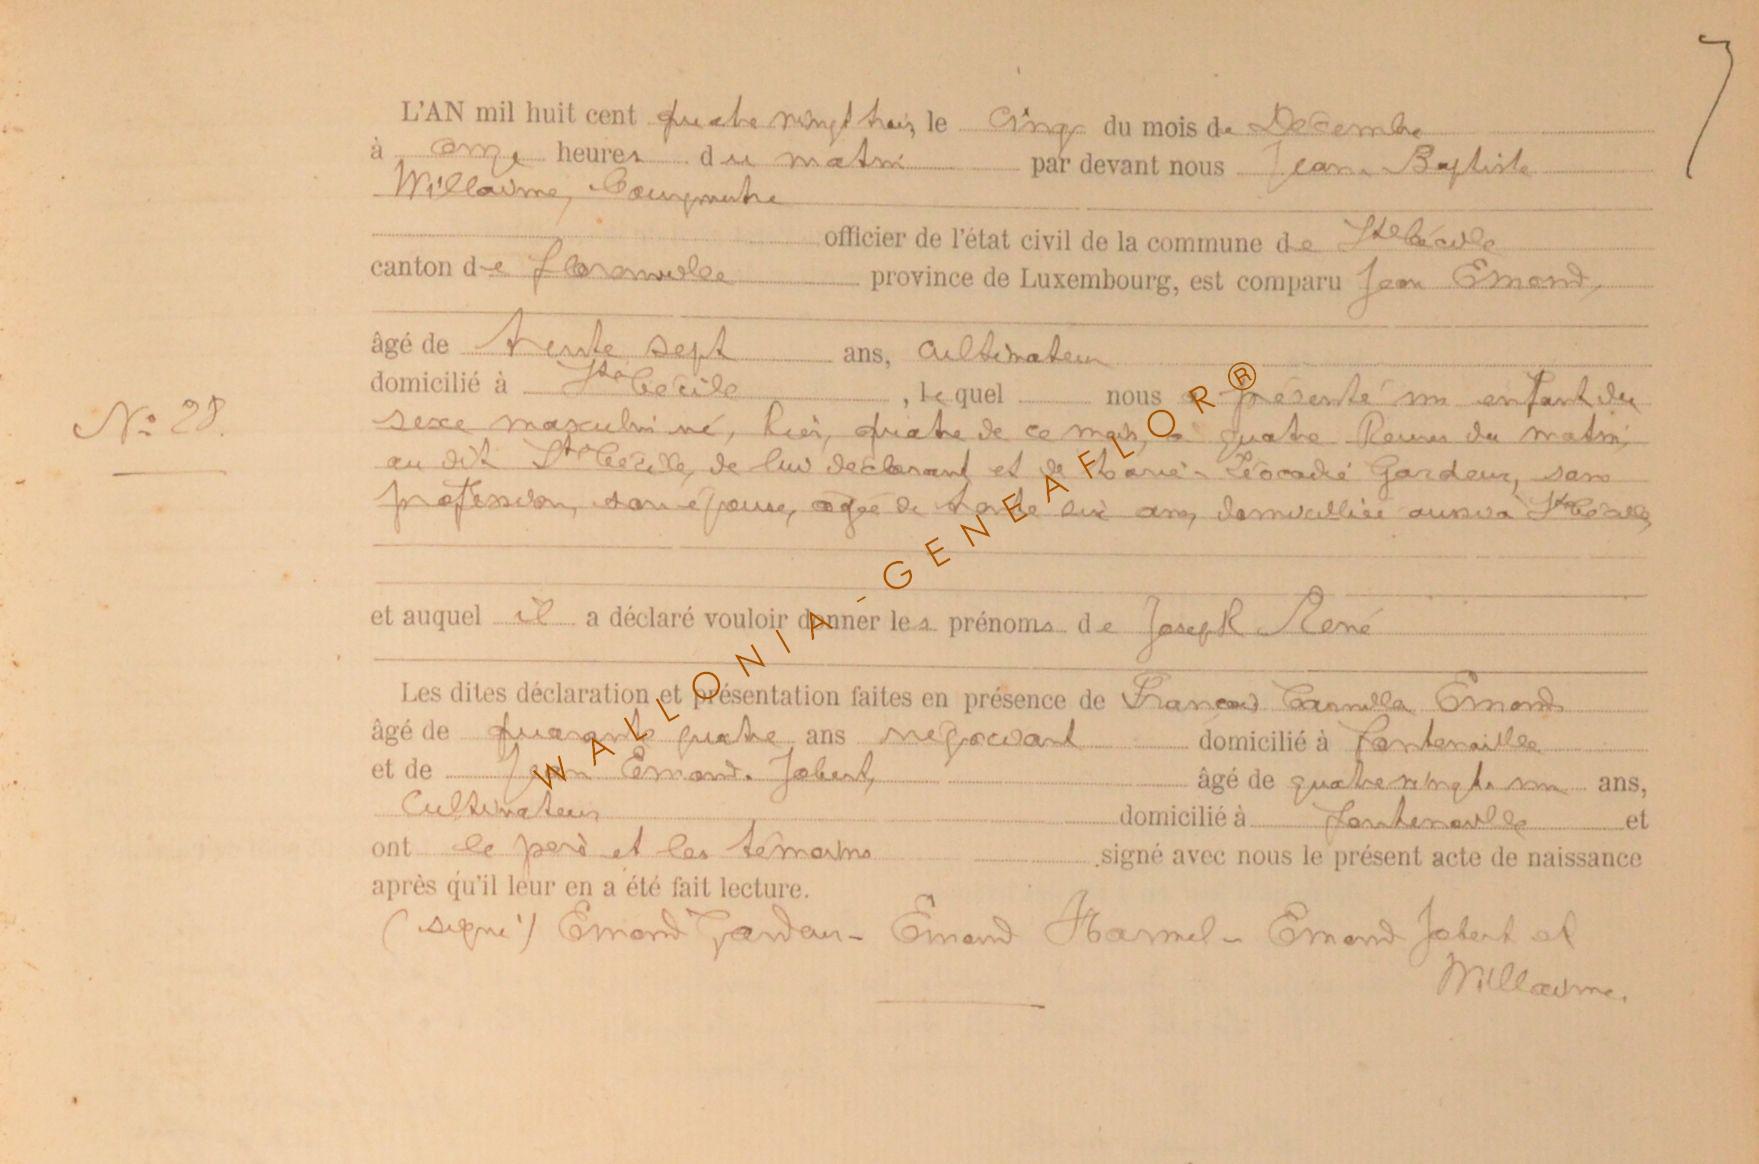 7
L'AN mil huit cent quatre vingt trois, le cinq du mois de Décembre
à onze heures du matin par devant nous Jean-Baptiste
Willaume, Bourgmestre
officier de l'état civil de la commune de Ste Cécile
canton de Florenville province de Luxembourg, est comparu Jean Emond,
âgé de trente sept ans, cultivateur
domicilié à Ste Cécile , lequel nous a présenté un enfant du
N° 28.
sexe masculin né, hier, quatre de ce mois, à quatre heures du matin,
au dit Ste Cécile, de lui déclarant et de Marie-Léocadie Gardeur, sans
profession, son épouse, agée de trente six ans, domiciliée aussi à Ste Cécile,
et auquel il a déclaré vouloir donner les prénoms de Joseph René
Les dites déclaration et présentation faites en présence de François Camille Emond
âgé de quarante quatre ans négociant domicilié à Fontenoille
et de Jean Emond-Jobert, âgé de quatre vingt-un ans,
cultivateur domicilié à Fontenoille et
ont le père et les témoins signé avec nous le présent acte de naissance
après qu'il leur en a été fait lecture.
(signé) Emond Gardeur - Emond - Emond Jobert et
Willaume.
WALLONIA-GENEAFLOR®